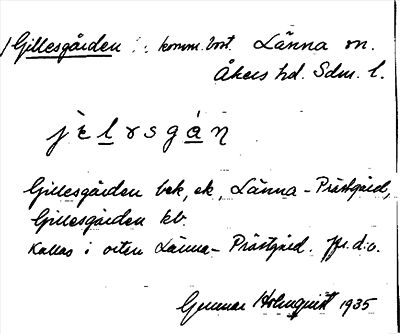 Gillesgården : komm. bost. Länna sn.
Åkers hd. Sdm. l.
jèlrsgán
Gillesgården bek, ek, Länna-Prästgård,
Gillesgården kb.
Kallas i orten Länna-Prästgård. Jfr. d:o.
Gunnar Holmquist 1935